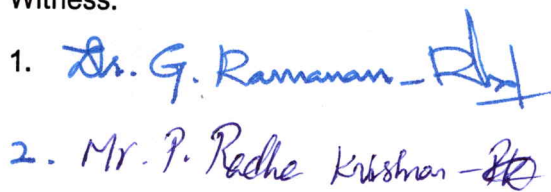 Witness:
1. Dr. G. Ramanan -
2. Mr. P. Radha Krishnan -